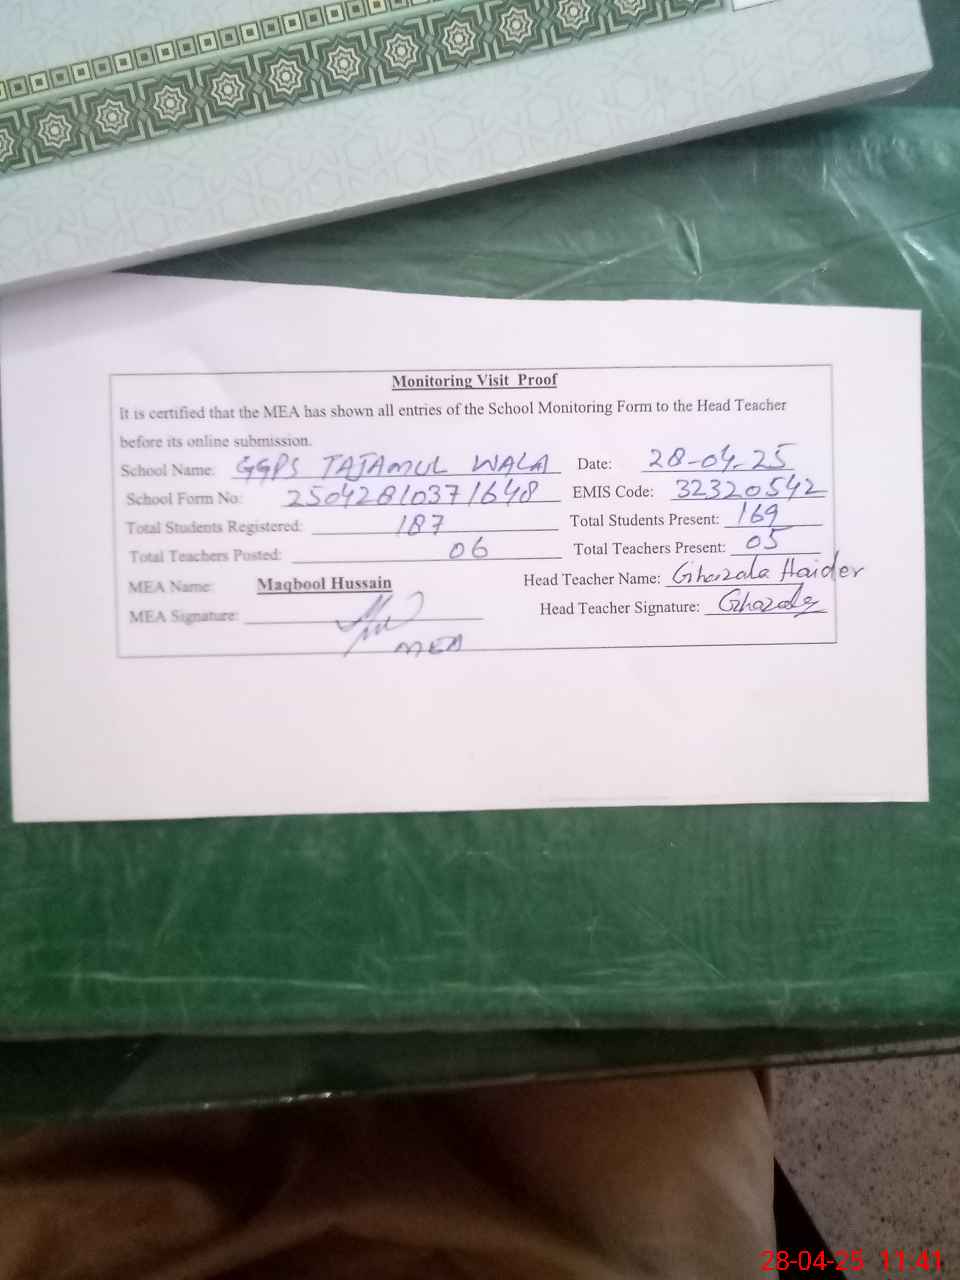 Monitoring Visit Proof
It is certified that the MEA has shown all entries of the School Monitoring Form to the Head Teacher
before its online submission.
School Name: GGPS TAJAMUL WALA Date: 28-04-25
School Form No: 25042810371648 EMIS Code: 32320542
Total Students Registered: 187 Total Students Present: 169
Total Teachers Posted: 06 Total Teachers Present: 05
MEA Name: Maqbool Hussain Head Teacher Name: Ghazala Haider
MEA Signature: Head Teacher Signature: Ghazala
MEA
28-04-25 11:41